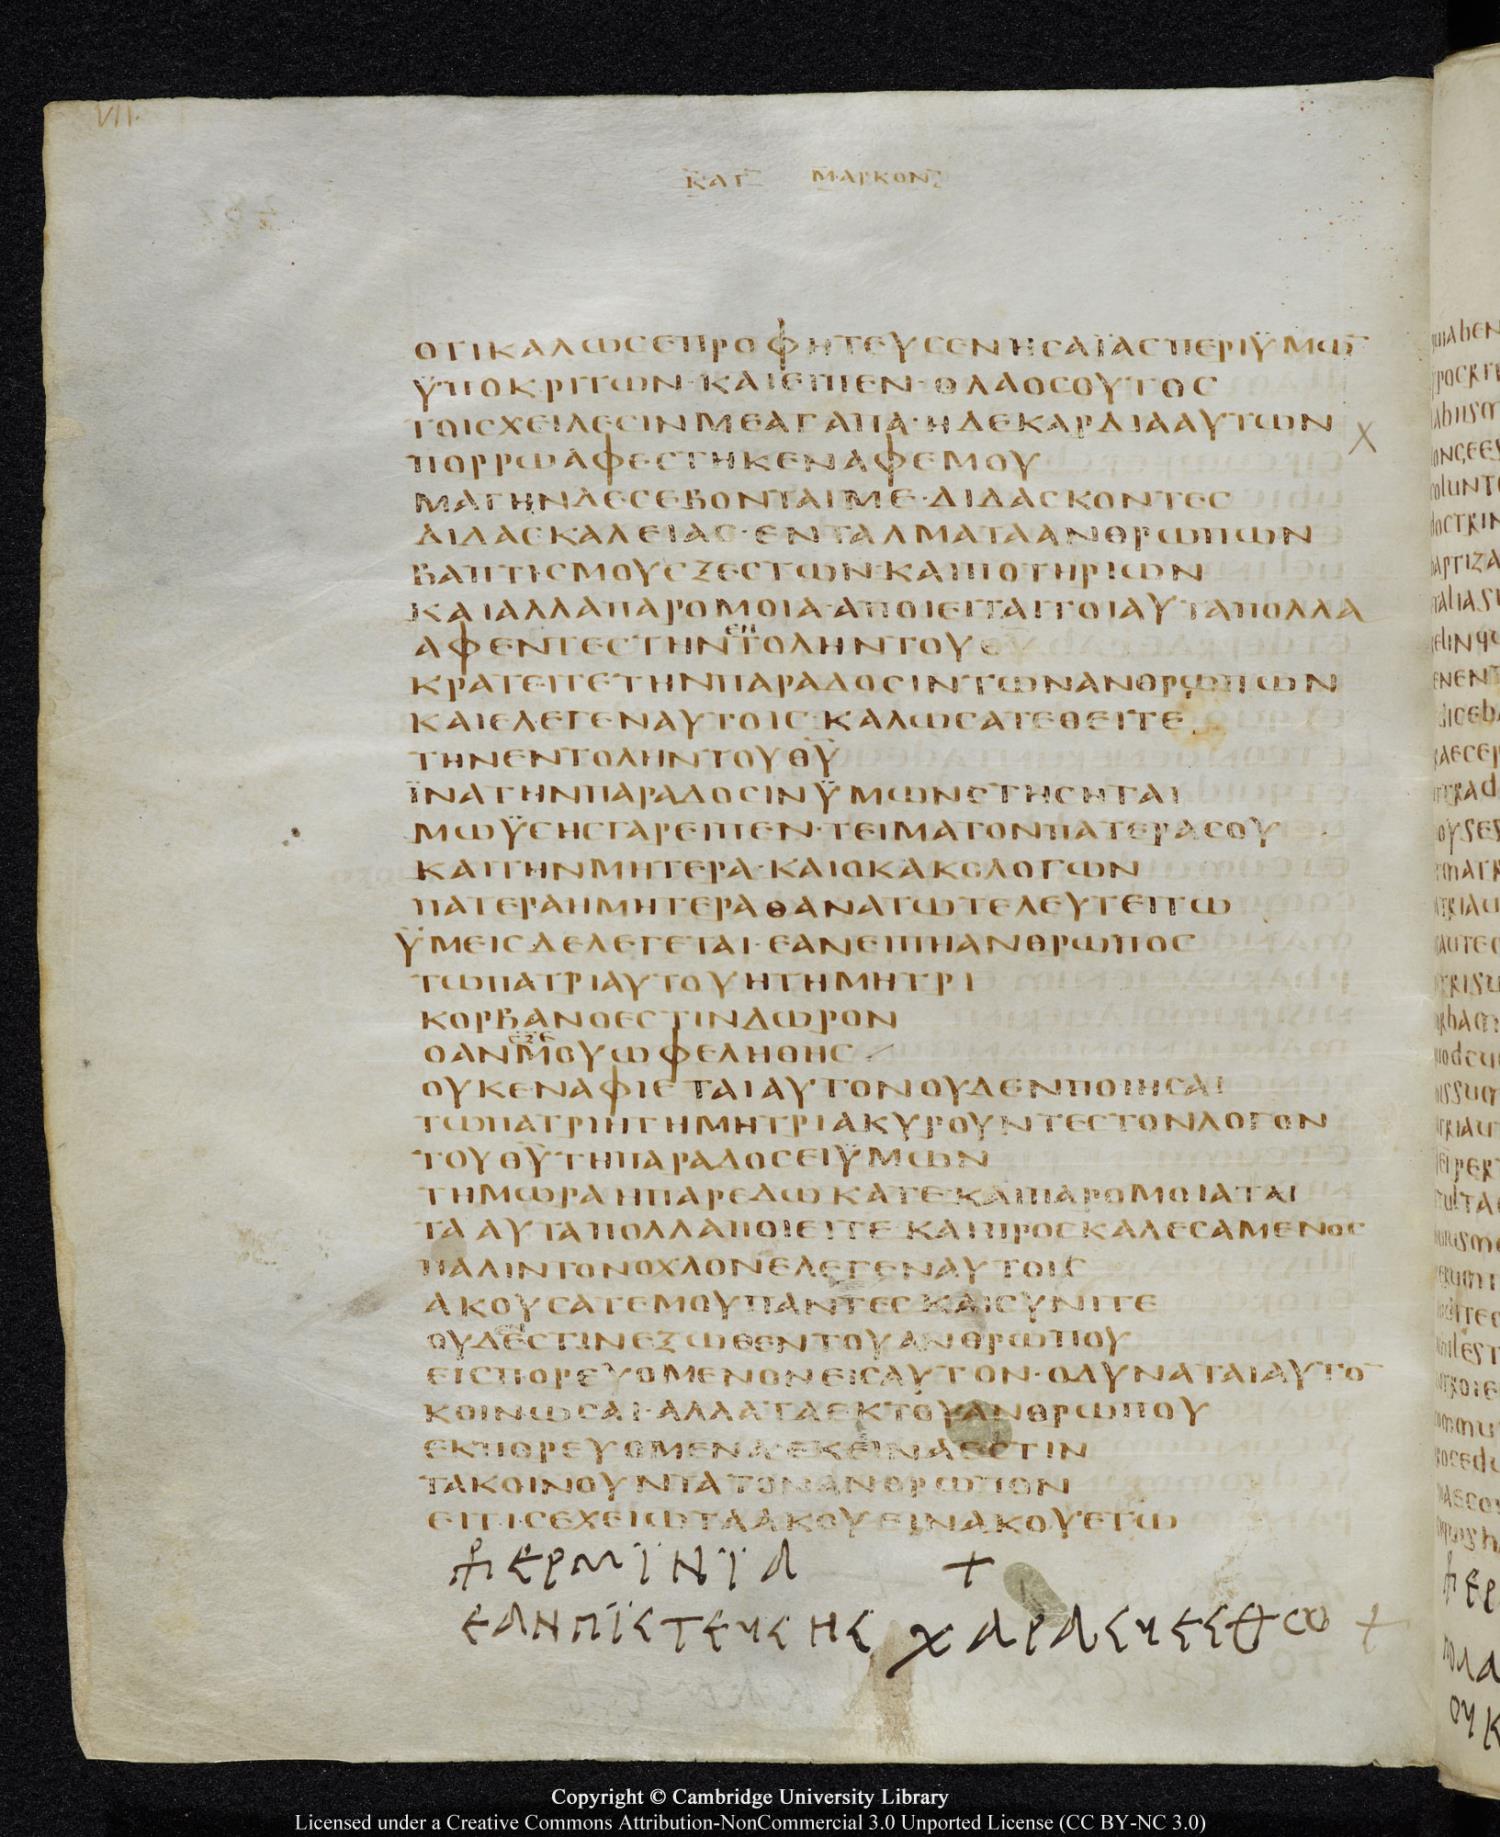 VII
ΚΑΤ ΜΑΡΚΟΝ
ΟΤΙΚΑΛΩСΕΠΡΟΦΗΤΕΥСΕΝΗСΑΪΑСΠΕΡΙΫΜΩ̅
ΫΠΟΚΡΙΤΩΝ·ΚΑΙΕΙΠΕΝ·ΟΛΑΟСΟΥΤΟС
ΤΟΙСΧΕΙΛΕСΙΝΜΕΑΓΑΠΑ·ΗΔΕΚΑΡΔΙΑΑΥΤΩΝ Χ
ΠΟΡΡΩΑΦΕСΤΗΚΕΝΑΦΕΜΟΥ
ΜΑΤΗΝΔΕСΕΒΟΝΤΑΙΜΕ·ΔΙΔΑСΚΟΝΤΕС
ΔΙΔΑСΚΑΛΕΙΑС·ΕΝΤΑΛΜΑΤΑΑΝΘΡΩΠΩΝ
ΒΑΠΤΙСΜΟΥСΞΕСΤΩΝ·ΚΑΙΠΟΤΗΡΙΩΝ
ΚΑΙΑΛΛΑΠΑΡΟΜΟΙΑ·ΑΠΟΙΕΙΤΑΙΤΟΙΑΥΤΑΠΟΛΛΑ
ΑΦΕΝΤΕСΤΗΝΕΝΤΟΛΗΝΤΟΥΘΥ
ΚΡΑΤΕΙΤΕΤΗΝΠΑΡΑΔΟСΙΝΤΩΝΑΝΘΡΩΠΩΝ
ΚΑΙΕΛΕΓΕΝΑΥΤΟΙС·ΚΑΛΩСΑΤΕΘΕΙΤΕ
ΤΗΝΕΝΤΟΛΗΝΤΟΥΘ̅Υ̅
ΪΝΑΤΗΝΠΑΡΑΔΟСΙΝΫΜΩΝСΤΗСΗΤΑΙ
ΜΩΫСΗСΓΑΡΕΙΠΕΝ·ΤΕΙΜΑΤΟΝΠΑΤΕΡΑСΟΥ
ΚΑΙΤΗΝΜΗΤΕΡΑ·ΚΑΙΟΚΑΚΟΛΟΓΩΝ
ΠΑΤΕΡΑΗΜΗΤΕΡΑΘΑΝΑΤΩΤΕΛΕΥΤΕΙΤΩ
ΫΜΕΙСΔΕΛΕΓΕΤΑΙ·ΕΑΝΕΙΠΗΑΝΘΡΩΠΟС
ΤΩΠΑΤΡΙΑΥΤΟΥΗΤΗΜΗΤΡΙ
ΚΟΡΒΑΝΟΕСΤΙΝΔΩΡΟΝ
ΟΑΝΕΞΕΜΟΥΩΦΕΛΗΘΗС
ΟΥΚΕΝΑΦΙΕΤΑΙΑΥΤΟΝΟΥΔΕΝΠΟΙΗСΑΙ
ΤΩΠΑΤΡΙΗΤΗΜΗΤΡΙΑΚΥΡΟΥΝΤΕСΤΟΝΛΟΓΟΝ
ΤΟΥΘ̅Υ̅ΤΗΠΑΡΑΔΟСΕΙΫΜΩΝ
ΤΗΜΩΡΑΗΠΑΡΕΔΩΚΑΤΕ·ΚΑΙΠΑΡΟΜΟΙΑΤΑΙ
ΤΑΑΥΤΑΠΟΛΛΑΠΟΙΕΙΤΕ·ΚΑΙΠΡΟСΚΑΛΕСΑΜΕΝΟС
ΠΑΛΙΝΤΟΝΟΧΛΟΝΕΛΕΓΕΝΑΥΤΟΙС
ΑΚΟΥСΑΤΕΜΟΥΠΑΝΤΕСΚΑΙСΥΝΙΤΕ
ΟΥΔΕΝΕСΤΙΝΕΞΩΘΕΝΤΟΥΑΝΘΡΩΠΟΥ
ΕΙСΠΟΡΕΥΟΜΕΝΟΝΕΙСΑΥΤΟΝ·ΟΔΥΝΑΤΑΙΑΥΤΟ̅
ΚΟΙΝΩСΑΙ·ΑΛΛΑΤΑΕΚΤΟΥΑΝΘΡΩΠΟΥ
ΕΚΠΟΡΕΥΟΜΕΝΑ·ΕΚΕΙΝΑΕСΤΙΝ
ΤΑΚΟΙΝΟΥΝΤΑΤΟΝΑΝΘΡΩΠΟΝ
ΕΙΤΙСΕΧΕΙΩΤΑΑΚΟΥΕΙΝΑΚΟΥΕΤΩ
ΕΡΜΪΝΪΑ +
ΕΑΝΠΪСΤΕΥСΗС ΧΑΡΑСΥΕСΘΩ +
Copyright © Cambridge University Library
Licensed under a Creative Commons Attribution-NonCommercial 3.0 Unported License (CC BY-NC 3.0)